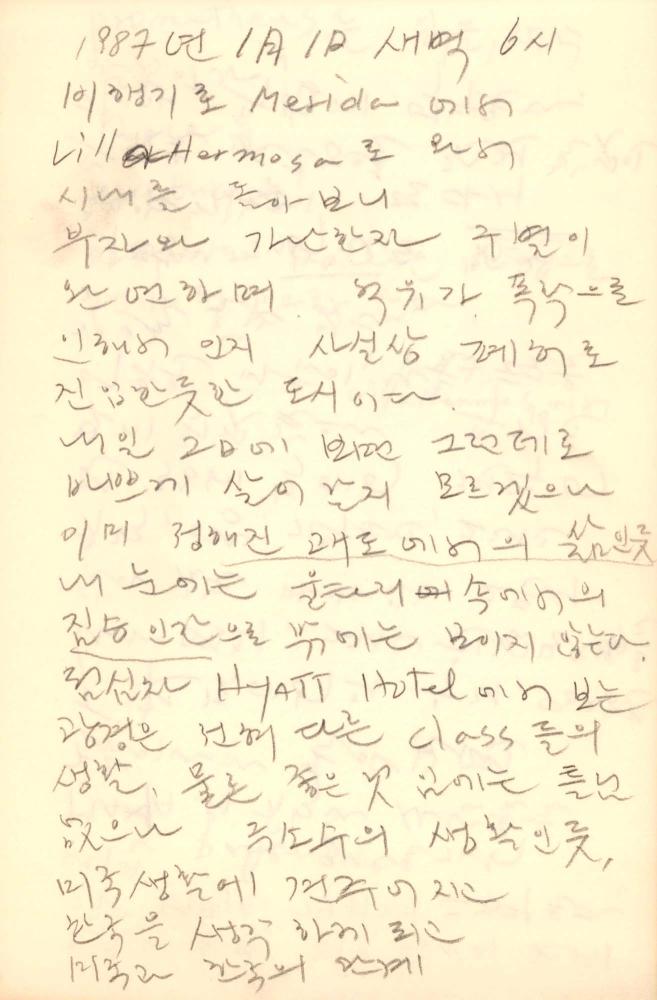 1987년 1月 1日 새벽 6시
비행기로 Merida 에서
VillaHermosa로 와서
시내를 돌아보니
부자와 가난한자 구별이
완연하며 석유가 폭락으로
인해서 인지 사실상 폐허로
진입한듯한 도시이다.
내일 그들에 보면 그런데로
바쁘게 살어 갈지 모르겠으나
이미 정해진 괘도에서의 삶인듯
내 눈에는 울타리 속에서의
짐승인간으로 밖에는 보이지 않는다.
점심차 HyATT Hotel 에서 보는
광경은 전혀 다른 class 들의
생활, 물론 좋은 것 임에는 틀님
없으나 극소수의 생활인듯,
미국생활에 견주어 지고
한국을 생각하게 되고
미국과 한국의 관계